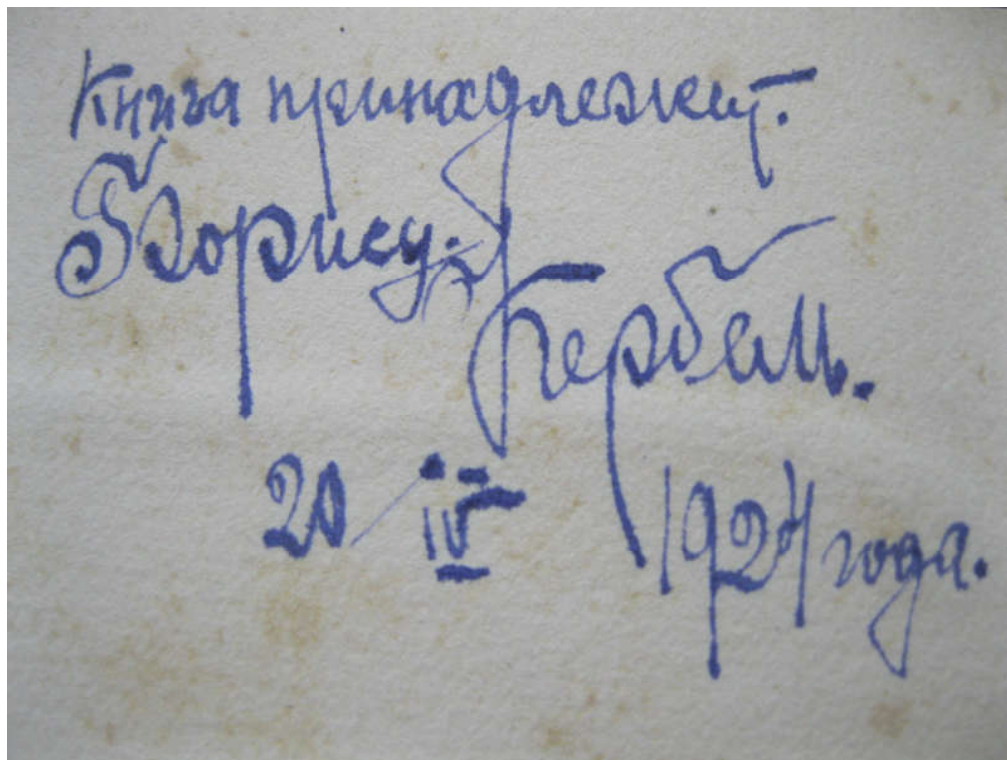 Книга принадлежит.
Борису.
Гербель.
20/IV 1924 года.